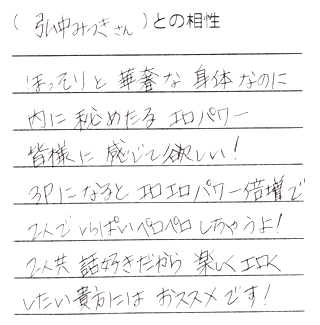 (弘中みつきさん)との相性
ほっそりと 華奢な 身体なのに
内に 秘めたる エロパワー
皆様に 感じて欲しい!
3Pになると エロエロパワー倍増で
2人で いっぱいペロペロ しちゃうよ!
2人共 話好きだから 楽しくエロく
したい貴方には おススメです!